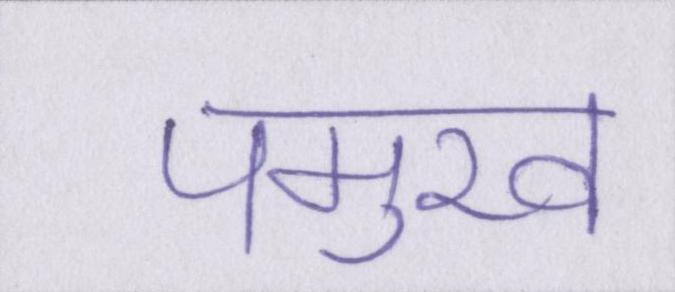 पमुख